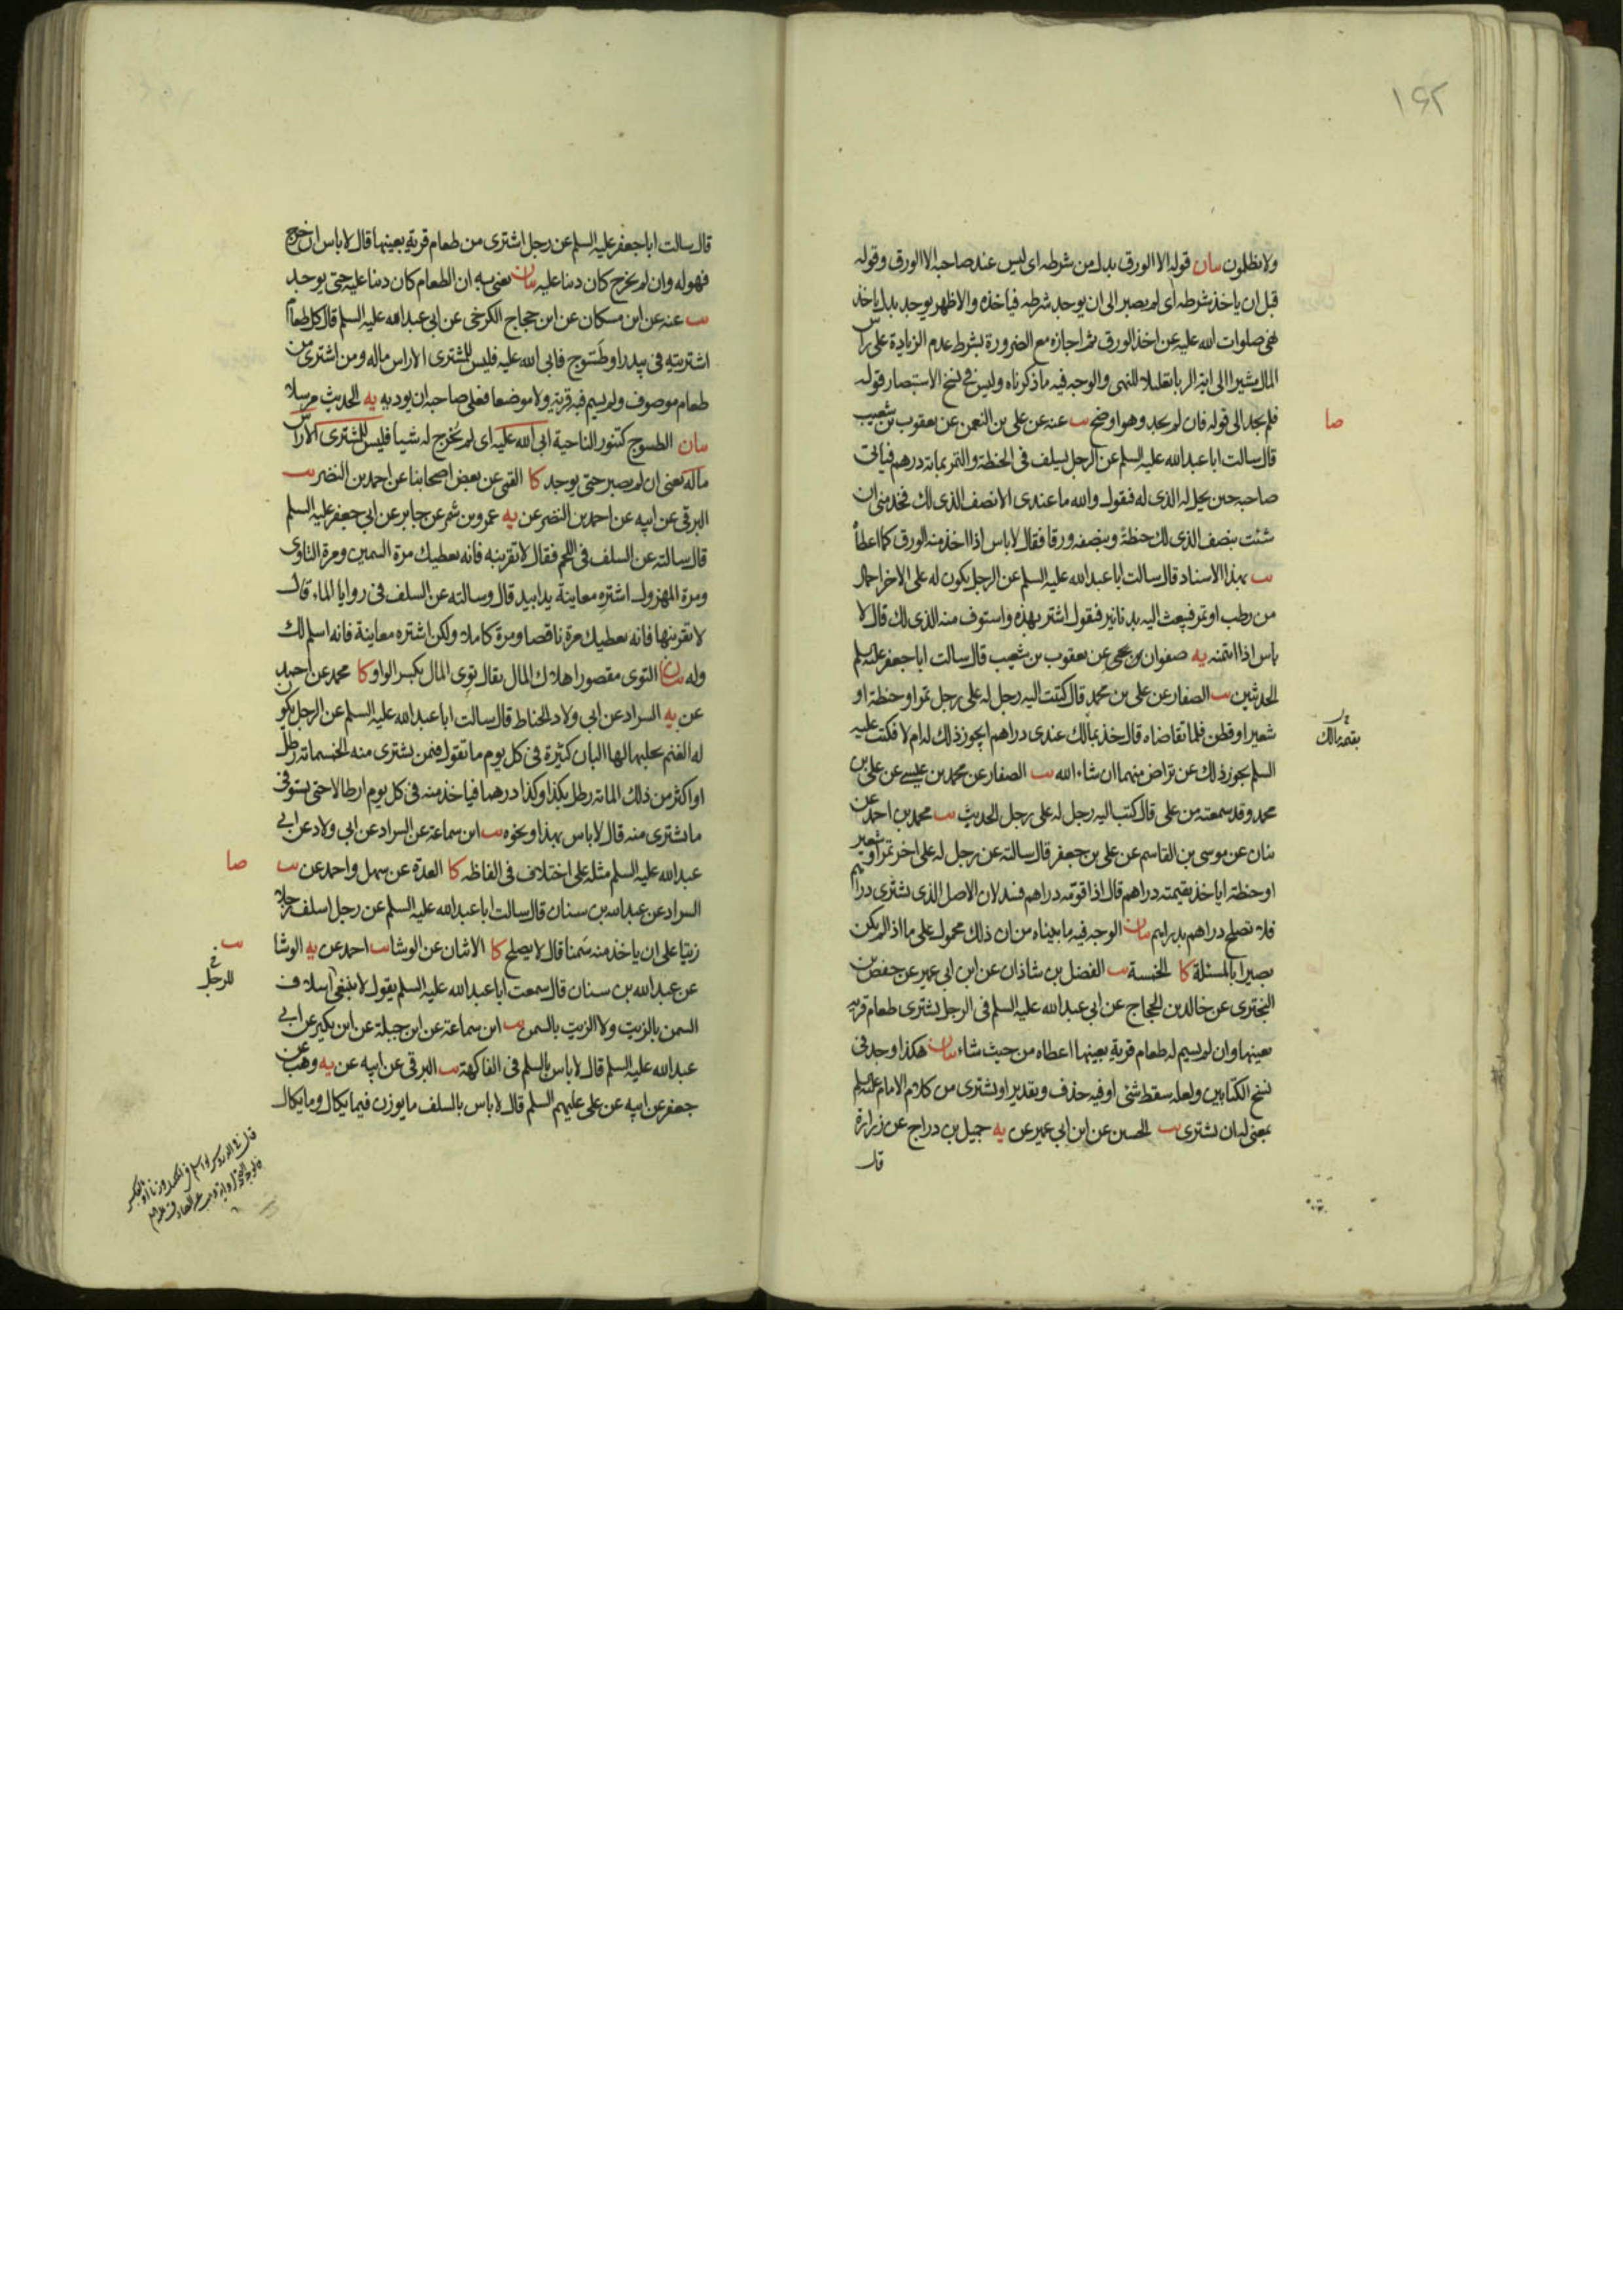 ١٦٢
ولا تظلمون بيان قوله الا الورق بدل من شرطه اى ليس عند صاحبه الا الورق وقوله
قبل ان ياخذ شرطه اى لم يصبر الى ان يوجد شرطه فياخذه والاظهر يوجد بدل ياخذ
نهى صلوات الله عليه عن اخذ الورق ثم اجازه مع الضرورة بشرط عدم الزيادة على راس
المال مشيرا الى اية الربا تعليلا للنهى والوجه فيه ما ذكرناه وليس فى نسخ الاستبصار قوله
فلم يجد الى قوله فان لم يجد وهو اوضح يب عنه عن على بن النعمن عن يعقوب بن شعيب
صا
قال سالت ابا عبد الله عليه السلم عن الرجل يسلف فى الحنطة والتمر بماية درهم فياتى
صاحبه حين يحل له الذى له فيقول والله ما عندى الا نصف الذى لك فخذ منى ان
شئت بنصف الذى لك حنطة وبنصفه ورقا فقال لا باس اذا اخذ منه الورق كما اعطاه
يب بهذا الاسناد قال سالت ابا عبد الله عليه السلم عن الرجل يكون له على الاخر احمال
من رطب او تمر فيبعث اليه بدنانير فيقول اشتر بهذه واستوف منه الذى لك قال لا
باس اذا ائتمنه يه صفوان بن يحيى عن يعقوب بن شعيب قال سالت ابا جعفر عليه السلم
الحديثين يب الصفار عن على بن محمد قال كتبت اليه رجل له على رجل تمر او حنطة او
شعير او قطن فلما تقاضاه قال خذ بمالك عندى دراهم ايجوز ذلك له ام لا فكتب عليه
بقيمة مالك
السلم يجوز ذلك عن تراض منهما ان شاء الله يب الصفار عن محمد بن عيسى عن على بن
محمد وقد سمعته من على قال كتب اليه رجل له على رجل الحديث يب محمد بن احمد عن
بنان عن موسى بن القاسم عن على بن جعفر قال سالته عن رجل له على اخر تمر او شعير
او حنطة اياخذ بقيمته دراهم قال اذا قومه دراهم فسد لان الاصل الذى يشترى دراهم
فلا تصلح دراهم بدراهم بيان الوجه فيه ما بيناه من ان ذلك محمول على ما اذا لم يكن
بصيرا بالمسئلة كا الخمسة يب الفضل بن شاذان عن ابن ابى عمير عن حفص بن
البخترى عن خالد بن الحجاج عن ابى عبد الله عليه السلم فى الرجل يشترى طعام قرية
بعينها وان لم يسم له طعام قرية بعينها اعطاه من حيث شاء بيان هكذا وجد فى
نسخ الكتابين ولعله سقط شئ او فيه حذف وتقدير او يشترى من كلام الامام عليه السلم
بمعنى له ان يشترى يب الحسين عن ابن ابى عمير عن يه جميل بن دراج عن زرارة
قال
قال سالت ابا جعفر عليه السلم عن رجل اشترى من طعام قرية بعينها قال لا باس ان خرج
فهو له وان لم يخرج كان دينا عليه بيان يعنى به ان الطعام كان دينا عليه حتى يوجد
يب عنه عن ابن مسكان عن ابن حجاج الكرخى عن ابى عبد الله عليه السلم قال كل طعام
اشتريته فى بيدر او طسوج فاتى الله عليه فليس للمشترى الا راس ماله ومن اشترى من
طعام موصوف ولم يسم فيه قرية ولا موضعا فعلى صاحبه ان يوديه يه الحديث مرسلا
بيان الطسوج كتنور الناحية اتى الله عليه اى لم يخرج له شيئا فليس للمشترى الا راس
ماله يعنى ان لم يصبر حتى يوجد كا القمى عن بعض اصحابنا عن احمد بن النضر يب
البرقى عن ابيه عن احمد بن النضر عن يه عمرو بن شمر عن جابر عن ابى جعفر عليه السلم
قال سالته عن السلف فى اللحم فقال لا تقربنه فانه يعطيك مرة السمين ومرة التاوى
ومرة المهزول اشتره معاينة يدا بيد قال وسالته عن السلف فى روايا الماء قال
لا تقربنها فانه يعطيك مرة ناقصا ومرة كاملة ولكن اشتره معاينة فانه اسلم لك
وله بيان التوى مقصورا هلاك المال يقال توى المال بكسر الواو كا محمد عن احمد
عن يه السراد عن ابى ولاد الحناط قال سالت ابا عبد الله عليه السلم عن الرجل يكون
له الغنم يحلبها لها البان كثيرة فى كل يوم ما تقول فيمن يشترى منه الخمسماية رطل
او اكثر من ذلك الماية رطل بكذا وكذا درهما فياخذ منه فى كل يوم ارطالا حتى يستوفى
ما يشترى منه قال لا باس بهذا ونحوه يب ابن سماعة عن السراد عن ابى ولاد عن ابى
عبد الله عليه السلم مثله على اختلاف فى الفاظه كا العدة عن سهل واحمد عن يب
صا
السراد عن عبد الله بن سنان قال سالت ابا عبد الله عليه السلم عن رجل اسلف رجلا
زيتا على ان ياخذ منه سمنا قال لا يصلح كا الاثنان عن الوشا يب احمد عن يه الوشا
يب
للرجل
عن عبد الله بن سنان قال سمعت ابا عبد الله عليه السلم يقول لا ينبغى اسلاف
السمن بالزيت ولا الزيت بالسمن يب ابن سماعة عن ابن جبلة عن ابن بكير عن ابى
عبد الله عليه السلم قال لا باس بالسلم فى الفاكهة يب البرقى عن ابيه عن يه وهب عن
جعفر عن ابيه عن على عليهم السلم قال لا باس بالسلف ما يوزن فيما يكال وما يكال